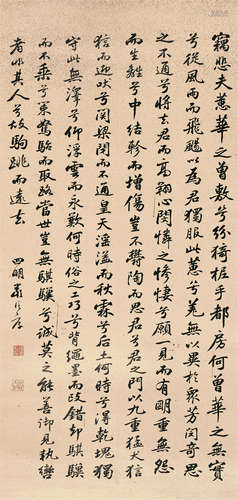 竊悲夫蕙華之曾敷兮紛猗柅乎都房何曾華之無實
兮從風雨而飛颺以為君獨服此蕙兮羌無以異於眾芳閔奇思
之不通兮將去君而高翔心閔憐之慘悽兮願一見而有明重無怨
而生離兮中結軫而增傷豈不鬱陶而思君兮君之門以九重猛犬狺
狺而迎吠兮關梁閉而不通皇天淫溢而秋霖兮后土何時兮得乾塊獨
守此無澤兮仰浮雲而永歎何時俗之工巧兮背繩墨而改錯卻騏驥
而不乘兮策駑駘而取路當世豈無騏驥兮誠莫之能善御見執轡
者非其人兮故駒跳而遠去
四明